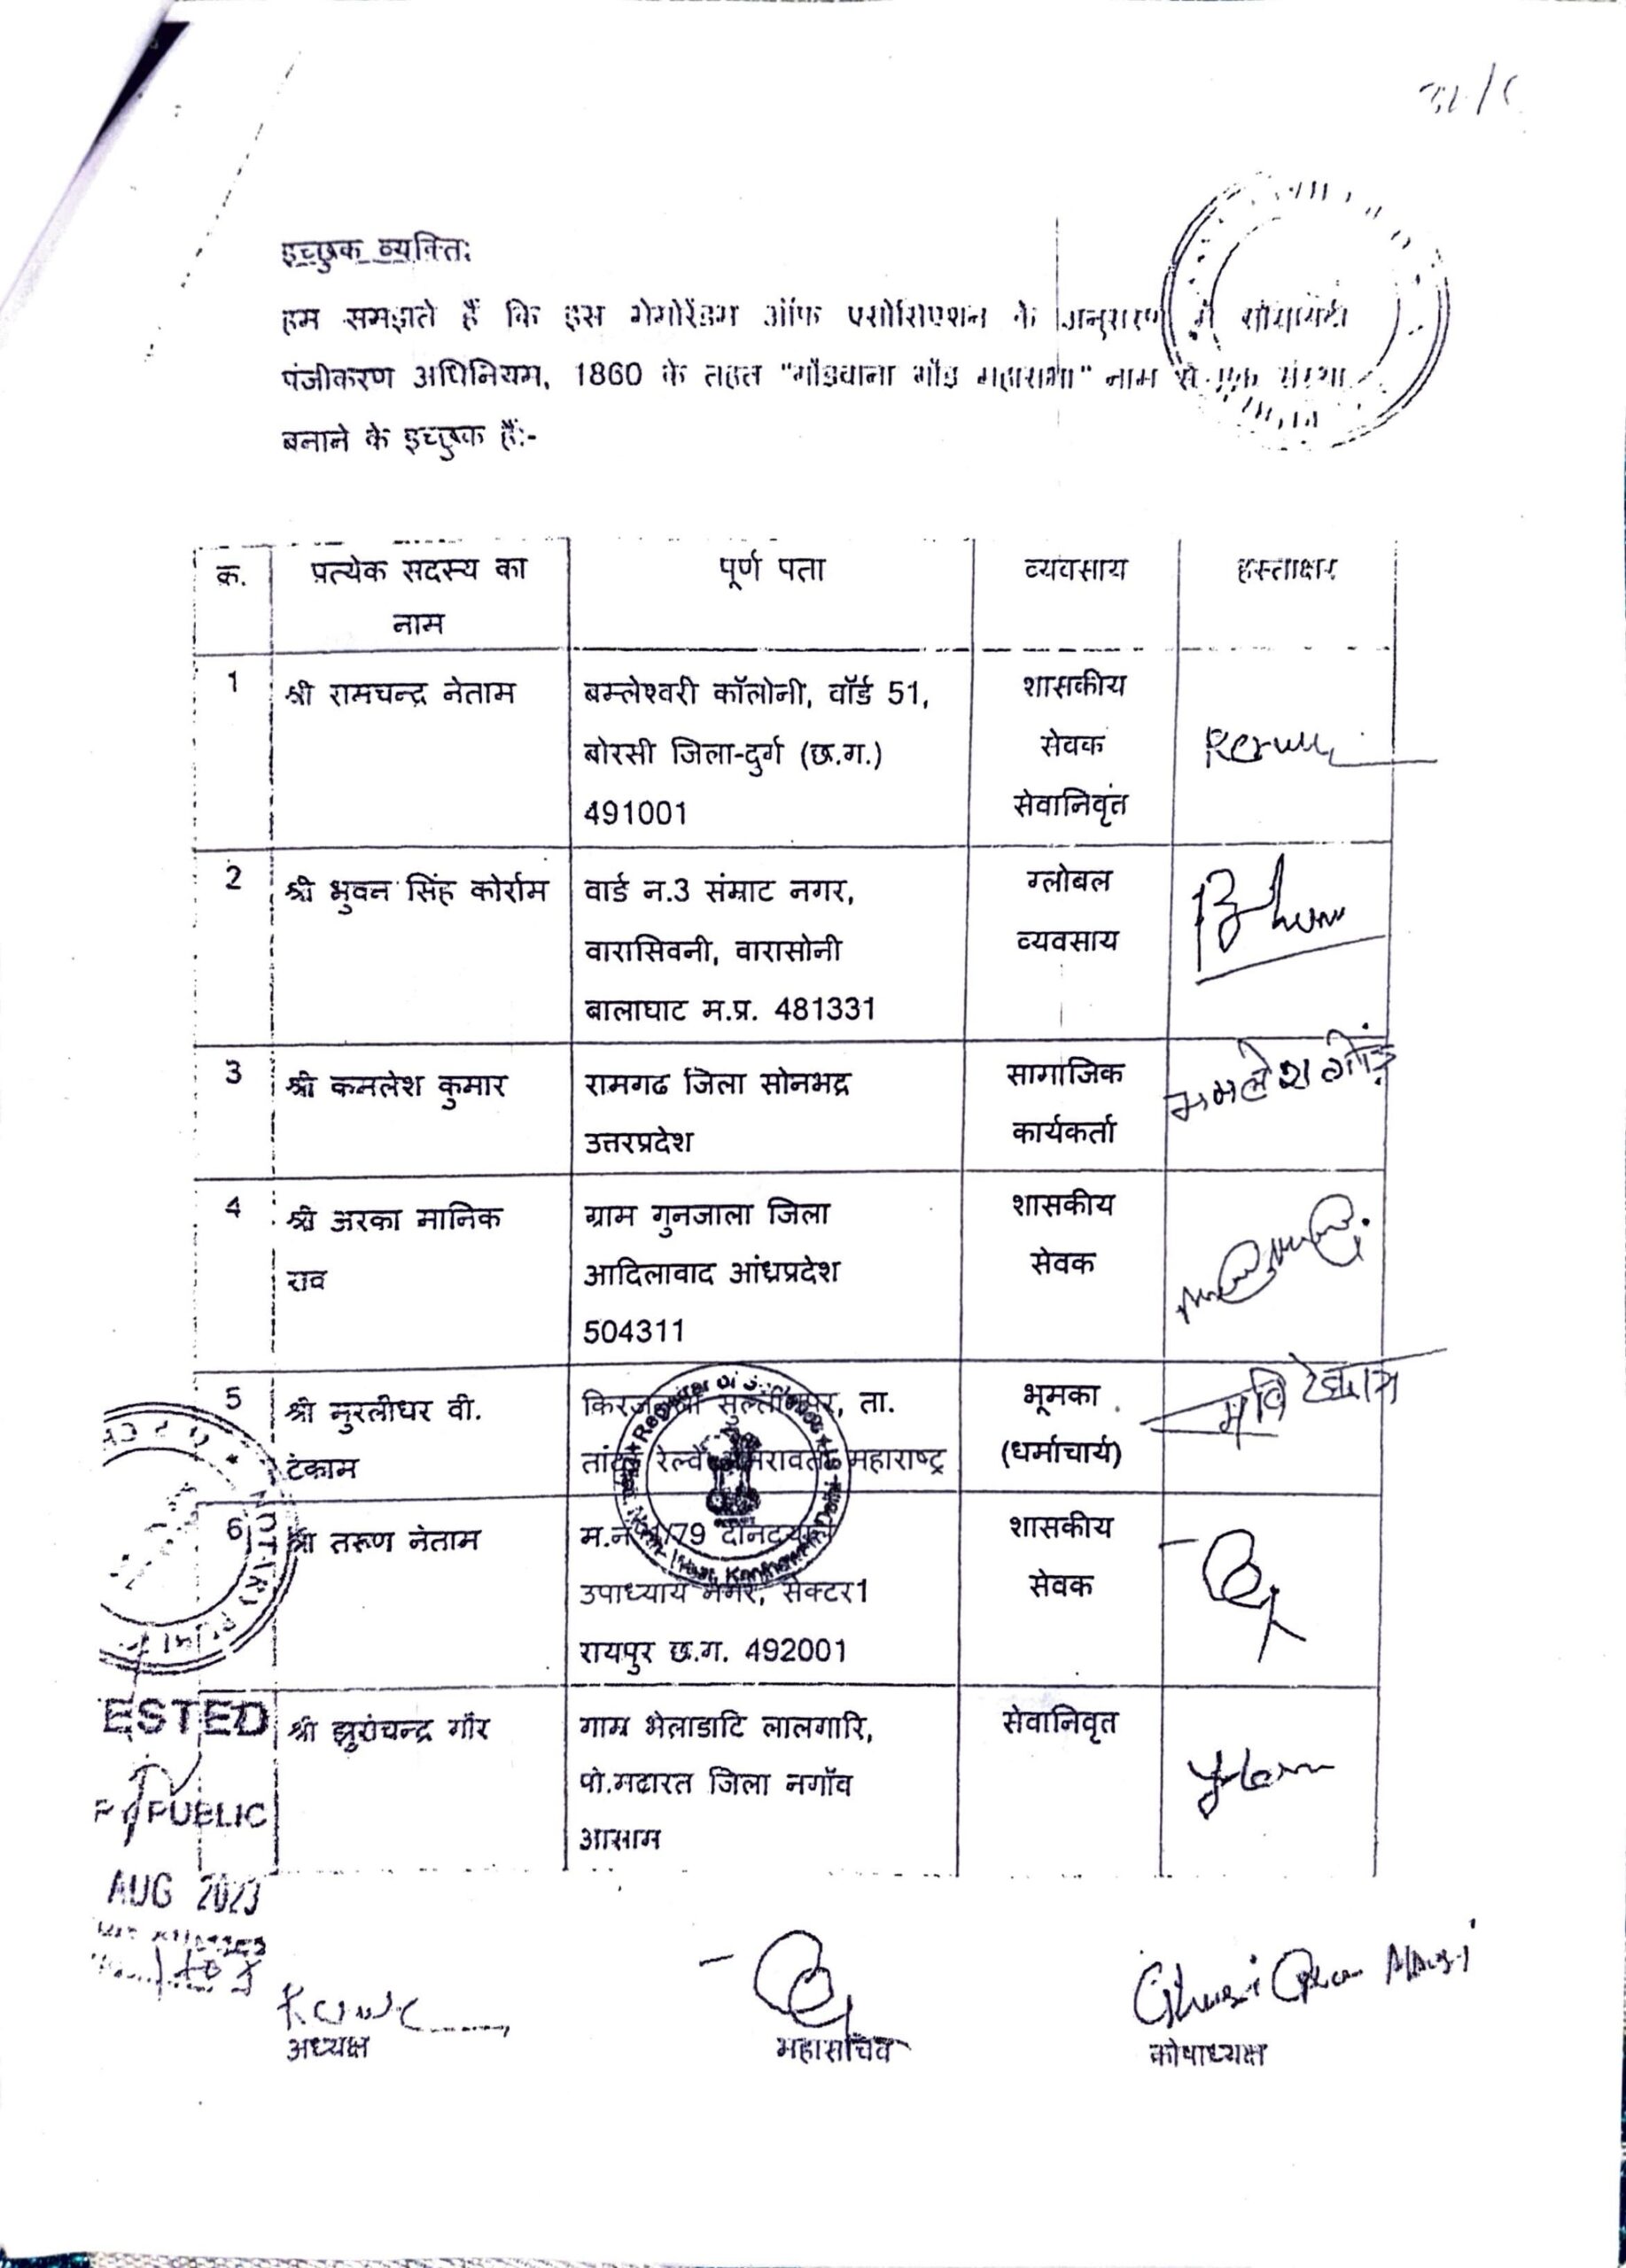 इच्छुक व्यक्ति:
हम समझते हैं कि इस मेमोरेंडम ऑफ एसोसिएशन के अनुसरण में सोसायटी
पंजीकरण अधिनियम, 1860 के तहत "गोंडवाना गोंड महासभा" नाम से एक संस्था
बनाने के इच्छुक हैं:-
क्र. प्रत्येक सदस्य का पूर्ण पता व्यवसाय हस्ताक्षर
नाम
1 श्री रामचन्द्र नेताम बम्लेश्वरी कॉलोनी, वॉर्ड 51, शासकीय
बोरसी जिला-दुर्ग (छ.ग.) सेवक
491001 सेवानिवृत
2 श्री भुवन सिंह कोर्राम वार्ड न.3 संम्राट नगर, ग्लोबल
वारासिवनी, वारासोनी व्यवसाय
बालाघाट म.प्र. 481331
3 श्री कमलेश कुमार रामगढ जिला सोनभद्र सामाजिक
उत्तरप्रदेश कार्यकर्ता
4 श्री अरका मानिक ग्राम गुनजाला जिला शासकीय
राव आदिलावाद आंध्रप्रदेश सेवक
504311
5 श्री मुरलीधर वी. ता. भूमका
टेकाम रेल्वे महाराष्ट्र (धर्माचार्य)
6 श्री तरूण नेताम म.न. /79 दीनदयाल शासकीय
उपाध्याय नगर, सेक्टर1 सेवक
रायपुर छ.ग. 492001
श्री गौर गाम्र भेलाडाटि लालगारि, सेवानिवृत
पो.मढारत जिला नगॉव
आसाम
ESTED
PUBLIC
AUG 2023
अध्यक्ष महासचिव कोषाध्यक्ष